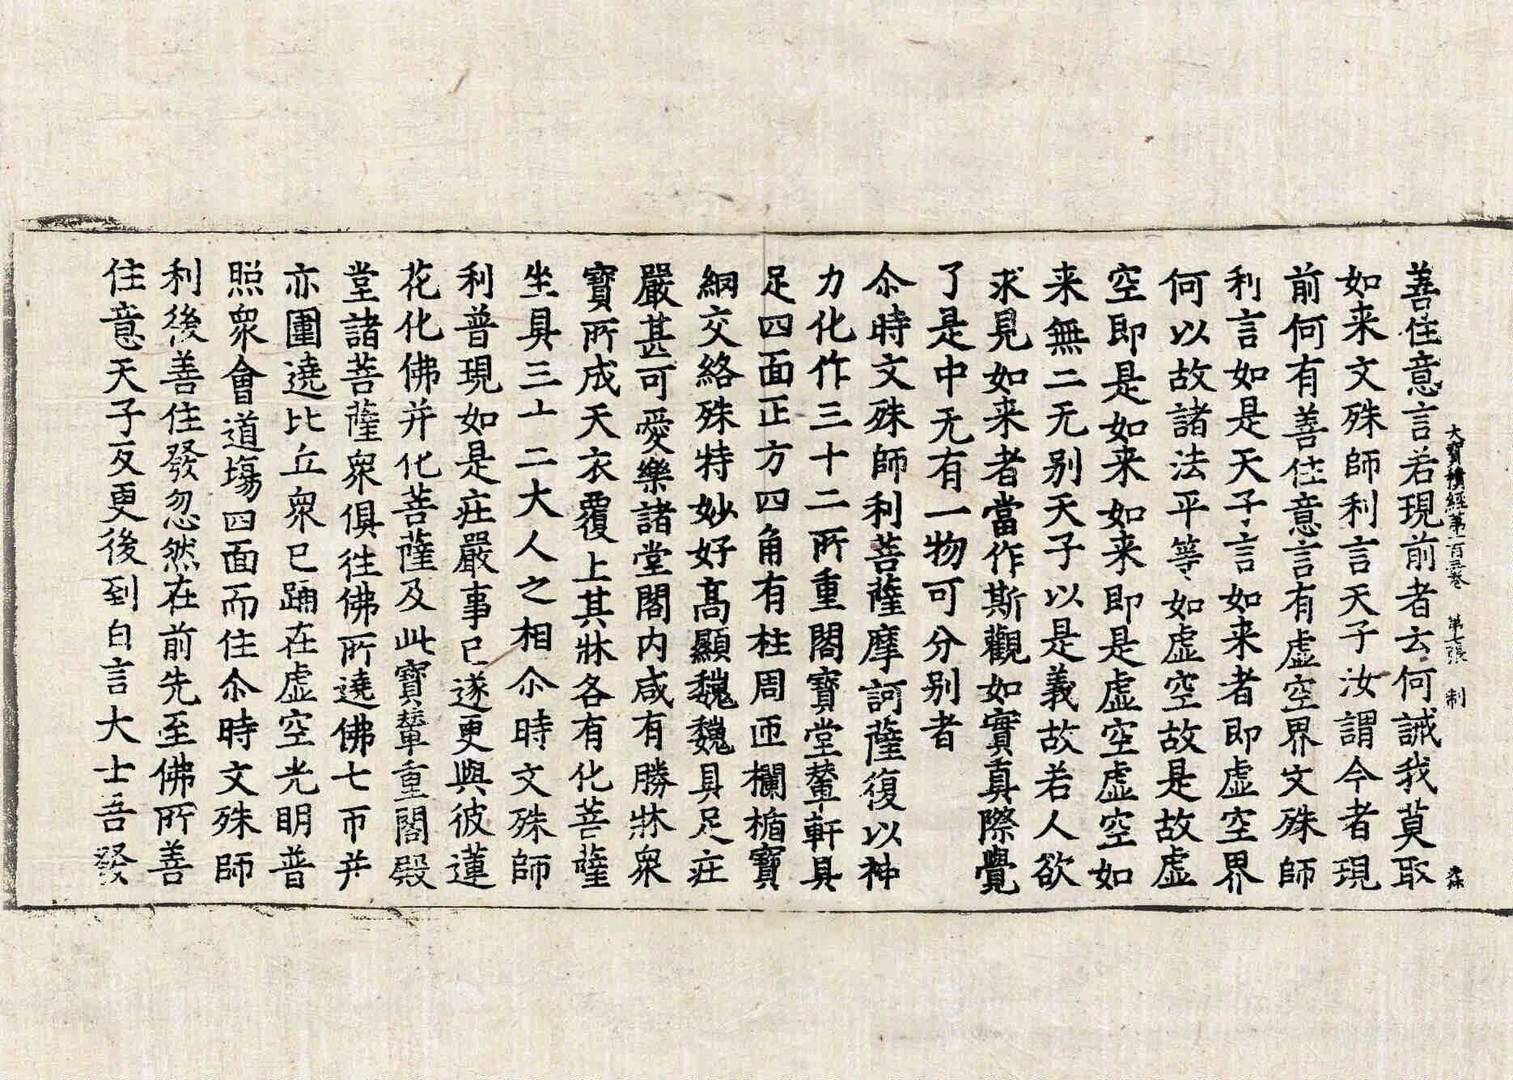 大寶積經苐一百三卷　第七張　制
善住意言若現前者云何誡我莫取
如来文殊師利言天子汝謂今者現
前何有善住意言有虛空界文殊師
利言如是天子言如来者即虛空界
何以故諸法平等如虛空故是故虛
空即是如来如来即是虛空虛空如
来無二无別天子以是義故若人欲
求見如来者當作斯觀如實真際覺
了是中无有一物可分別者
尒時文殊師利菩薩摩訶薩復以神
力化作三十二所重閣寶堂輦軒具
足四面正方四角有柱周匝欄楯寶
網交絡殊特妙好髙顯巍巍具足莊
嚴甚可愛樂諸堂閣内咸有勝牀衆
寶所成天衣覆上其牀各有化菩薩
坐具三十二大人之相尒時文殊師
利普現如是莊嚴事已遂更與彼蓮
花化佛并化菩薩及此寶輦重閣殿
堂諸菩薩衆俱往佛所遶佛七帀并
亦圍遶比丘衆已踊在虛空光明普
照衆會道塲四面而住尒時文殊師
利後善住發忽然在前先至佛所善
住意天子反更後到白言大士吾發